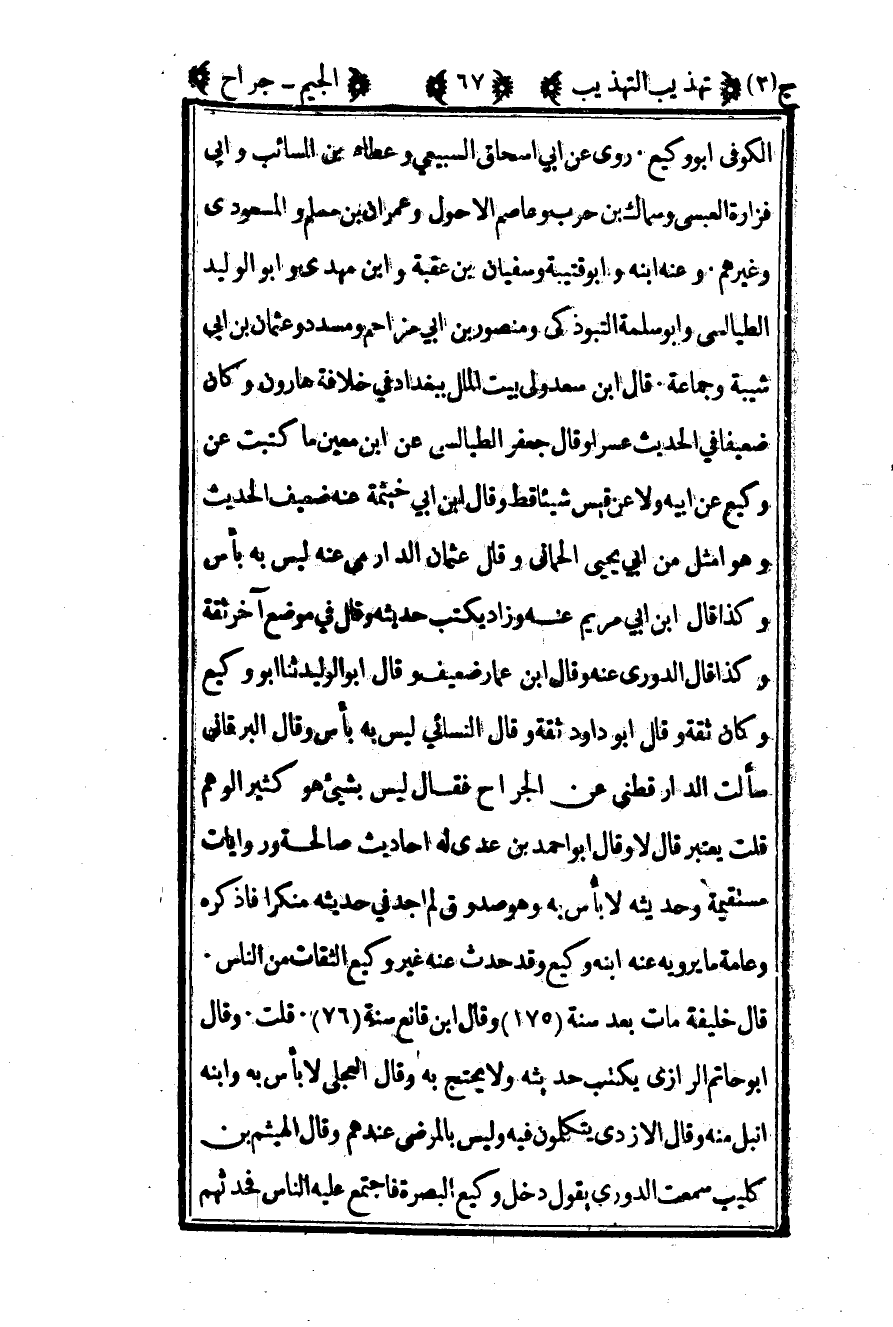 ج(٢) تهذيب التهذيب ٦٧ الجيم ـ جراح
الكوفى ابووكيع ٠ روى عن ابي اسحاق السبيعي وعطاء بن السائب وابى
فزارة العبسى وسماك بن حرب وعاصم الاحول وعمران بن مسلم والمسعودى
وغيرهم ٠ وعنه ابنه وابوقتيبة وسفيان بن عقبة وابن مهدى وابو الوليد
الطيالسى وابوسلمة التبوذكى ومنصور بن ابي مزاحم ومسدد وعثمان بن ابي
شيبة وجماعة ٠ قال ابن سعد ولى بيت المال ببغداد في خلافة هارون وكان
ضعيفا في الحديث عسرا وقال جعفر الطيالسى عن ابن معين ما كتبت عن
وكيع عن ابيه ولا عن قيس شيئا قط وقال ابن ابي خيثمة عنه ضعيف الحديث
وهو امثل من ابي يحيى الحمانى وقال عثمان الدارمي عنه ليس به بأس
وكذا قال ابن ابي مريم عنه وزاد يكتب حديثه وقال في موضع آخر ثقة
وكذا قال الدورى عنه وقال ابن عمار ضعيف وقال ابو الوليد ثنا ابو وكيع
وكان ثقة وقال ابو داود ثقة وقال النسائي ليس به بأس وقال البرقانى
سألت الدارقطني عن الجراح فقال ليس بشيئ هو كثير الوهم
قلت يعتبر قال لا وقال ابو احمد بن عدى له احاديث صالحة وروايات
مستقيمة وحديثه لا بأس به وهو صدوق لم اجد في حديثه منكرا فاذكره
وعامة ما يرويه عنه ابنه وكيع وقد حدث عنه غير وكيع الثقات من الناس ٠
قال خليفة مات بعد سنة (١٧٥) وقال ابن قانع سنة (٧٦) ٠ قلت ٠ وقال
ابو حاتم الرازى يكتب حديثه ولا يحتج به وقال العجلى لا بأس به وابنه
انبل منه وقال الازدى يتكلمون فيه وليس بالمرضى عندهم وقال الهيثم بن
كليب سمعت الدوري يقول دخل وكيع البصرة فاجتمع عليه الناس فحدثهم